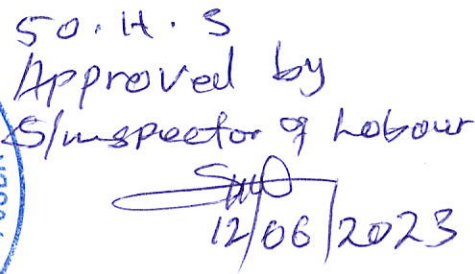 50.H.S
Approved by
S/Inspector of Labour
12/06/2023